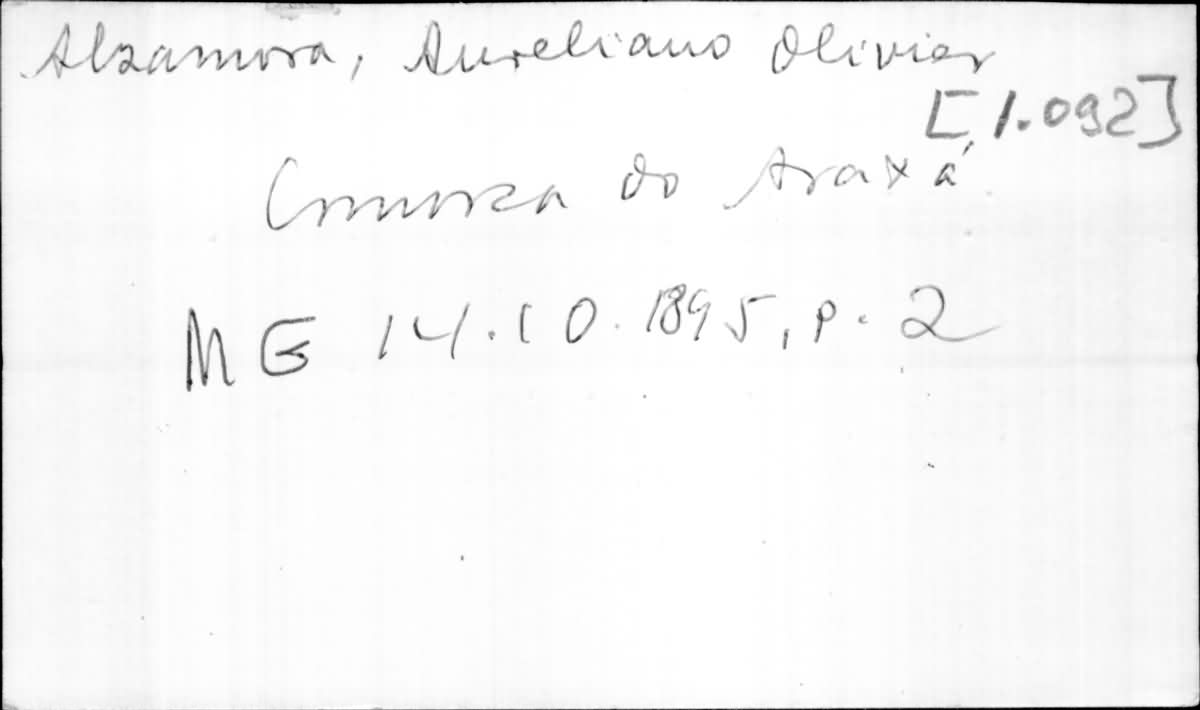 Alzamora, Aureliano Olivier
[1.092]
Comarca do Araxá
MG 14.10.1895, p. 2